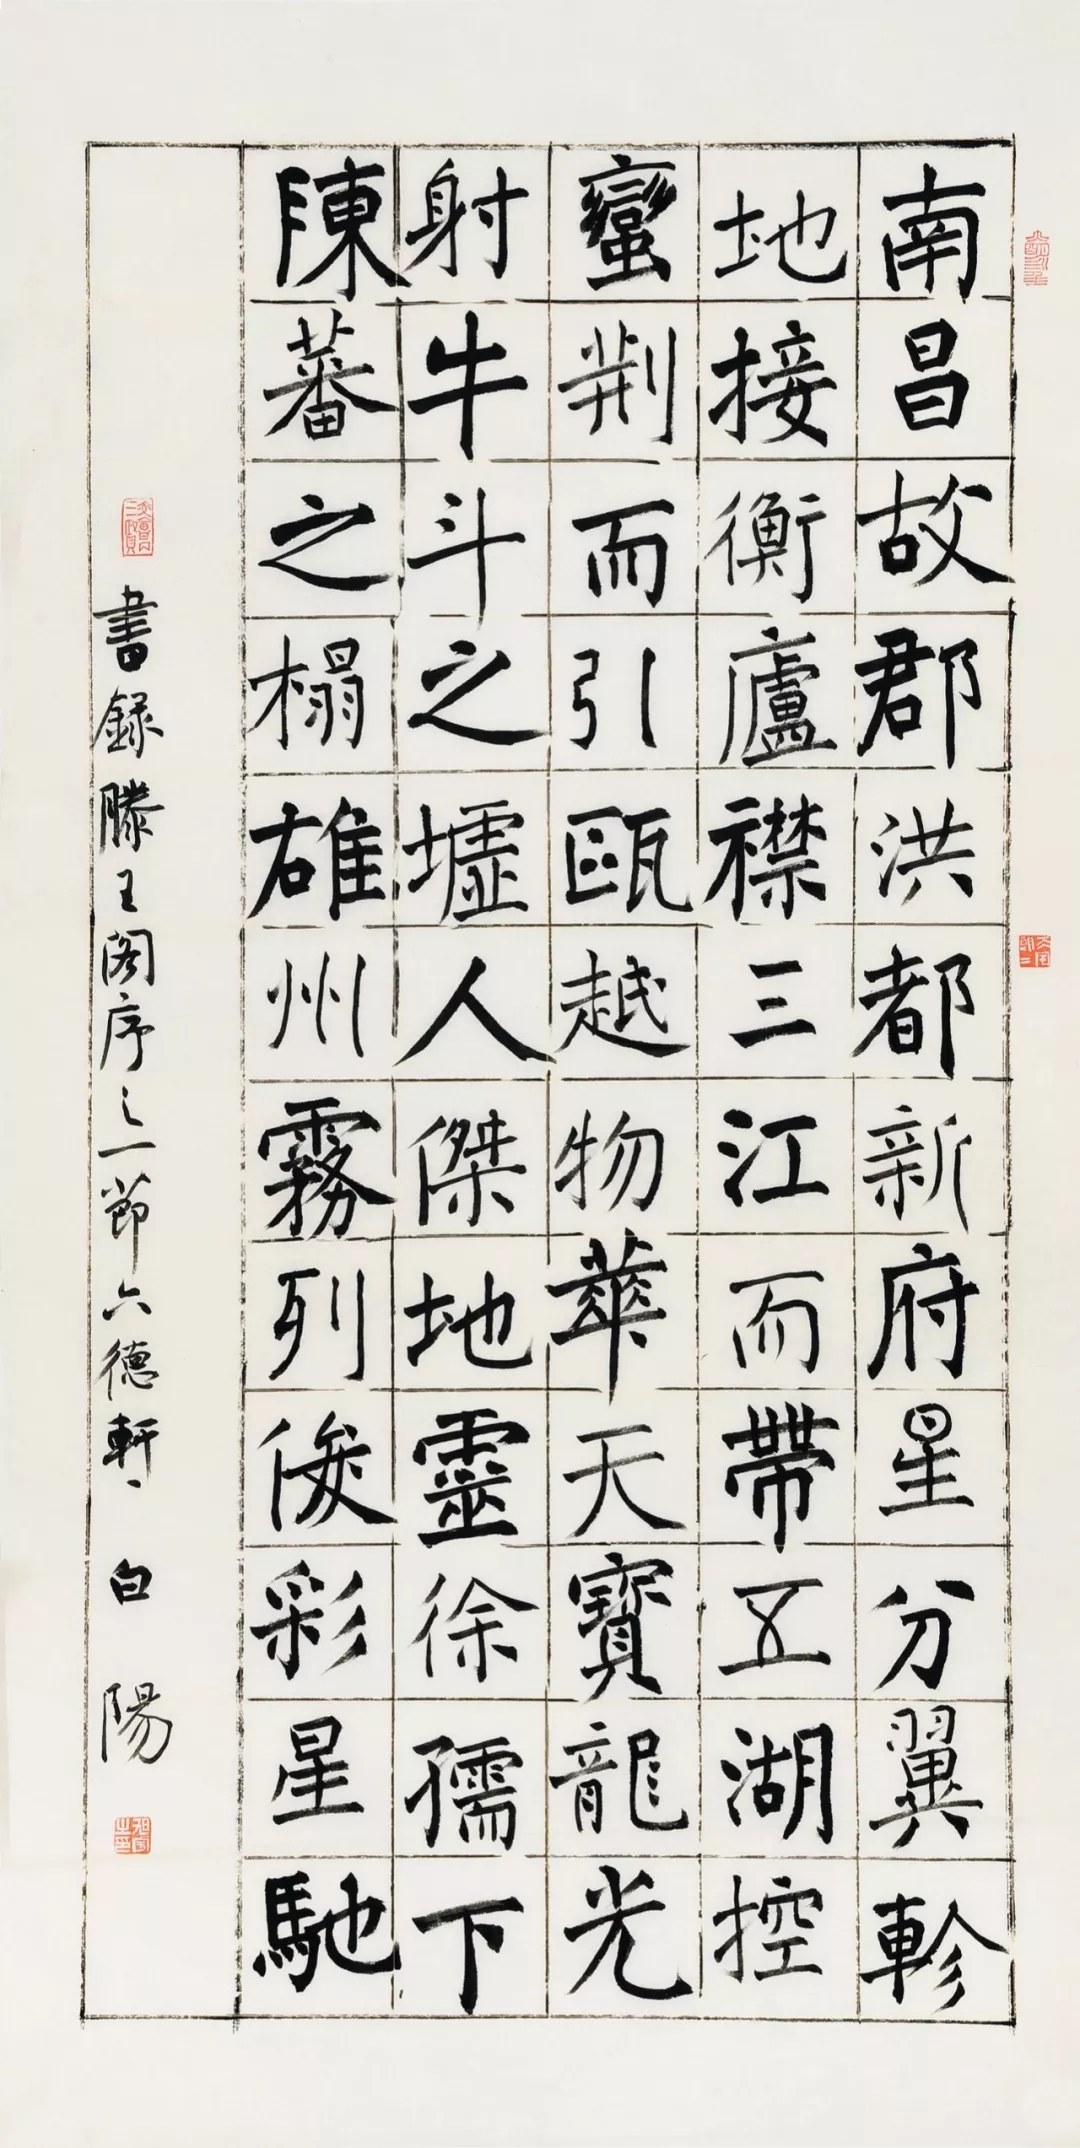 南昌故郡洪都新府星分翼軫
地接衡廬襟三江而帶五湖控
蠻荆而引甌越物華天寶龍光
射牛斗之墟人傑地靈徐孺下
陳蕃之榻雄州霧列俊彩星馳
書録滕王閣序之一節六德軒白陽